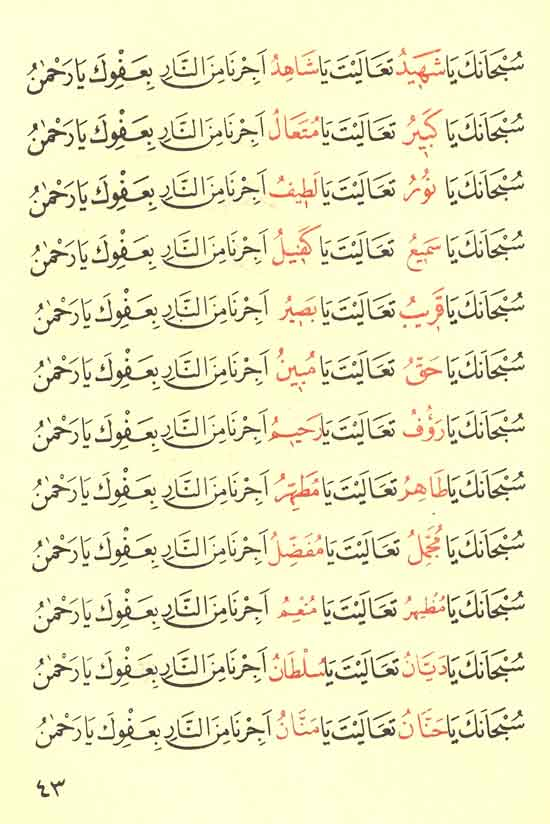 سُبْحَانَكَ يَا شَهِيدُ تَعَالَيْتَ يَا شَاهِدُ اَجِرْنَا مِنَ النَّارِ بِعَفْوِكَ يَا رَحْمٰنُ
سُبْحَانَكَ يَا كَبِيرُ تَعَالَيْتَ يَا مُتَعَالُ اَجِرْنَا مِنَ النَّارِ بِعَفْوِكَ يَا رَحْمٰنُ
سُبْحَانَكَ يَا نُورُ تَعَالَيْتَ يَا لَطِيفُ اَجِرْنَا مِنَ النَّارِ بِعَفْوِكَ يَا رَحْمٰنُ
سُبْحَانَكَ يَا سَمِيعُ تَعَالَيْتَ يَا كَفِيلُ اَجِرْنَا مِنَ النَّارِ بِعَفْوِكَ يَا رَحْمٰنُ
سُبْحَانَكَ يَا قَرِيبُ تَعَالَيْتَ يَا بَصِيرُ اَجِرْنَا مِنَ النَّارِ بِعَفْوِكَ يَا رَحْمٰنُ
سُبْحَانَكَ يَا حَقُّ تَعَالَيْتَ يَا مُبِينُ اَجِرْنَا مِنَ النَّارِ بِعَفْوِكَ يَا رَحْمٰنُ
سُبْحَانَكَ يَا رَؤُفُ تَعَالَيْتَ يَا رَحِيمُ اَجِرْنَا مِنَ النَّارِ بِعَفْوِكَ يَا رَحْمٰنُ
سُبْحَانَكَ يَا طَاهِرُ تَعَالَيْتَ يَا مُطَهِّرُ اَجِرْنَا مِنَ النَّارِ بِعَفْوِكَ يَا رَحْمٰنُ
سُبْحَانَكَ يَا مُجَمِّلُ تَعَالَيْتَ يَا مُفَضِّلُ اَجِرْنَا مِنَ النَّارِ بِعَفْوِكَ يَا رَحْمٰنُ
سُبْحَانَكَ يَا مُظْهِرُ تَعَالَيْتَ يَا مُنْعِمُ اَجِرْنَا مِنَ النَّارِ بِعَفْوِكَ يَا رَحْمٰنُ
سُبْحَانَكَ يَا دَيَّانُ تَعَالَيْتَ يَا سُلْطَانُ اَجِرْنَا مِنَ النَّارِ بِعَفْوِكَ يَا رَحْمٰنُ
سُبْحَانَكَ يَا حَنَّانُ تَعَالَيْتَ يَا مَنَّانُ اَجِرْنَا مِنَ النَّارِ بِعَفْوِكَ يَا رَحْمٰنُ
٤٣